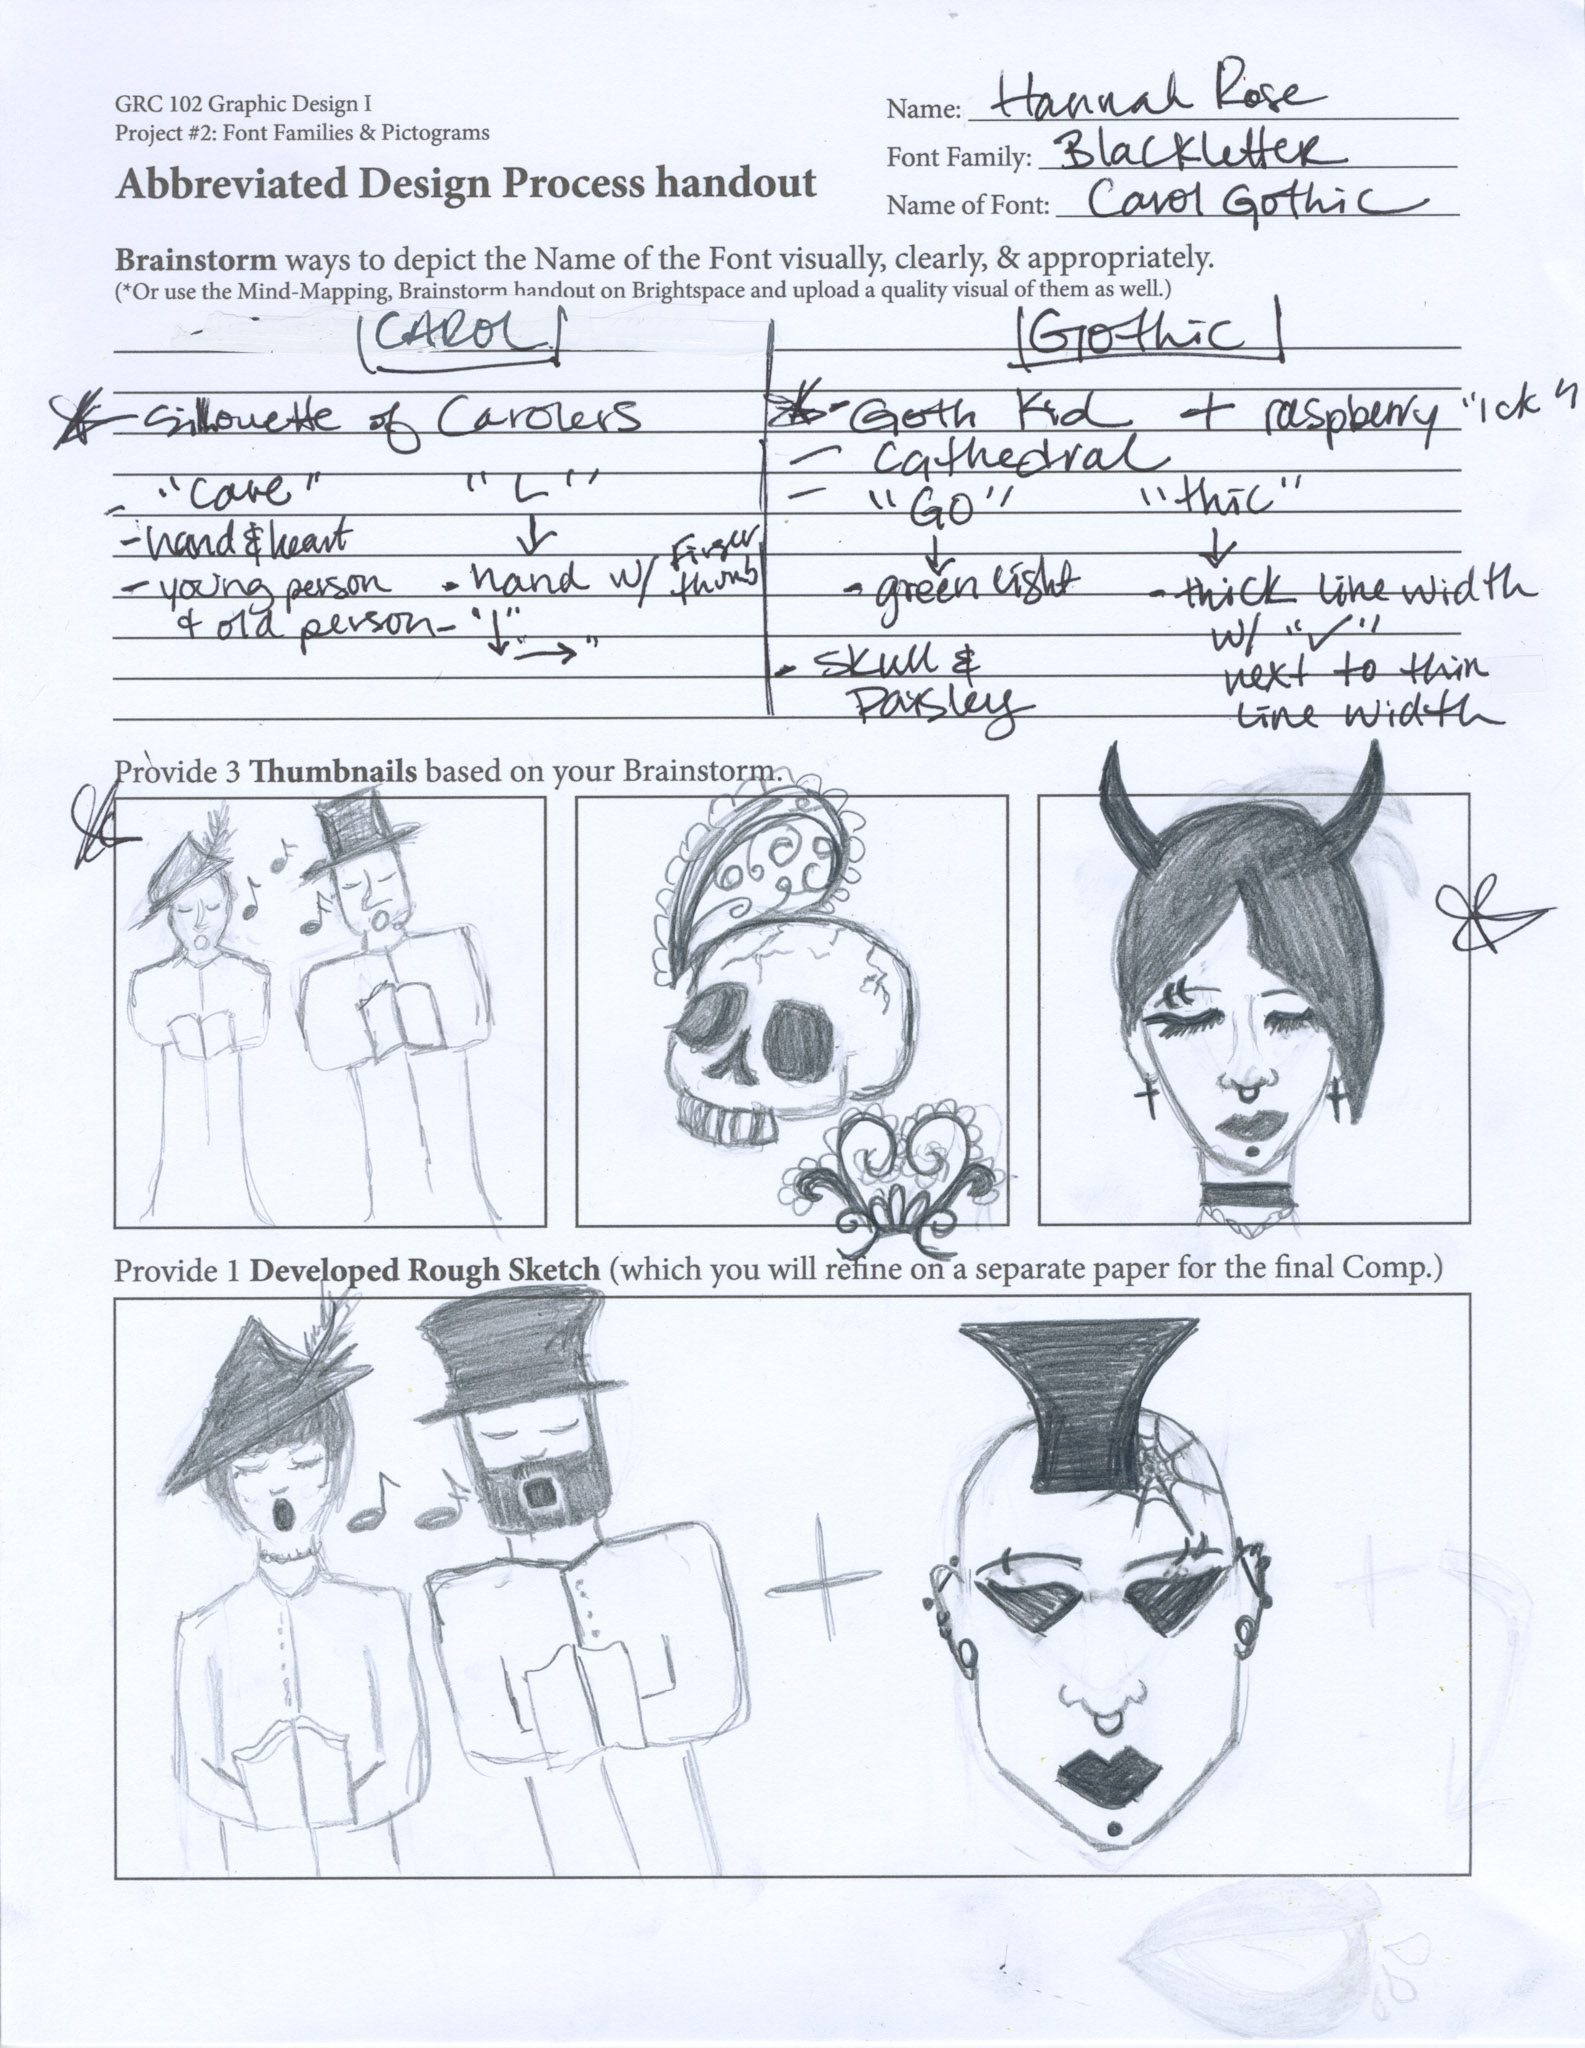 GRC 102 Graphic Design I
Project #2: Font Families & Pictograms
Abbreviated Design Process handout
Name: Hannah Rose
Font Family: Blackletter
Name of Font: Carol Gothic
Brainstorm ways to depict the Name of the Font visually, clearly, & appropriately.
(*Or use the Mind-Mapping, Brainstorm handout on Brightspace and upload a quality visual of them as well.)
CAROL
- Sillouette of Carolers
- "Care" "L"
- hand & heart ↓
- young person - hand w/ Finger thumb
& old person - "↓" "→"
Gothic
- Goth Kid + raspberry "ick"
- Cathedral
- "GO" "thic"
↓ ↓
- green light - thick line width
w/ "✓"
- Skull & next to thin
Paisley line width
Provide 3 Thumbnails based on your Brainstorm.
Provide 1 Developed Rough Sketch (which you will refine on a separate paper for the final Comp.)